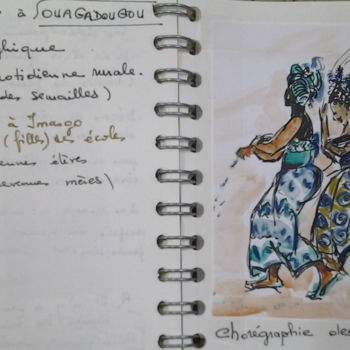 à OUAGADOUGOU
phique
otidienne rurale.
des semailles)
à Imasgo
(filles) des écoles
ennes élèves
devenues mères)
Chorégraphie des